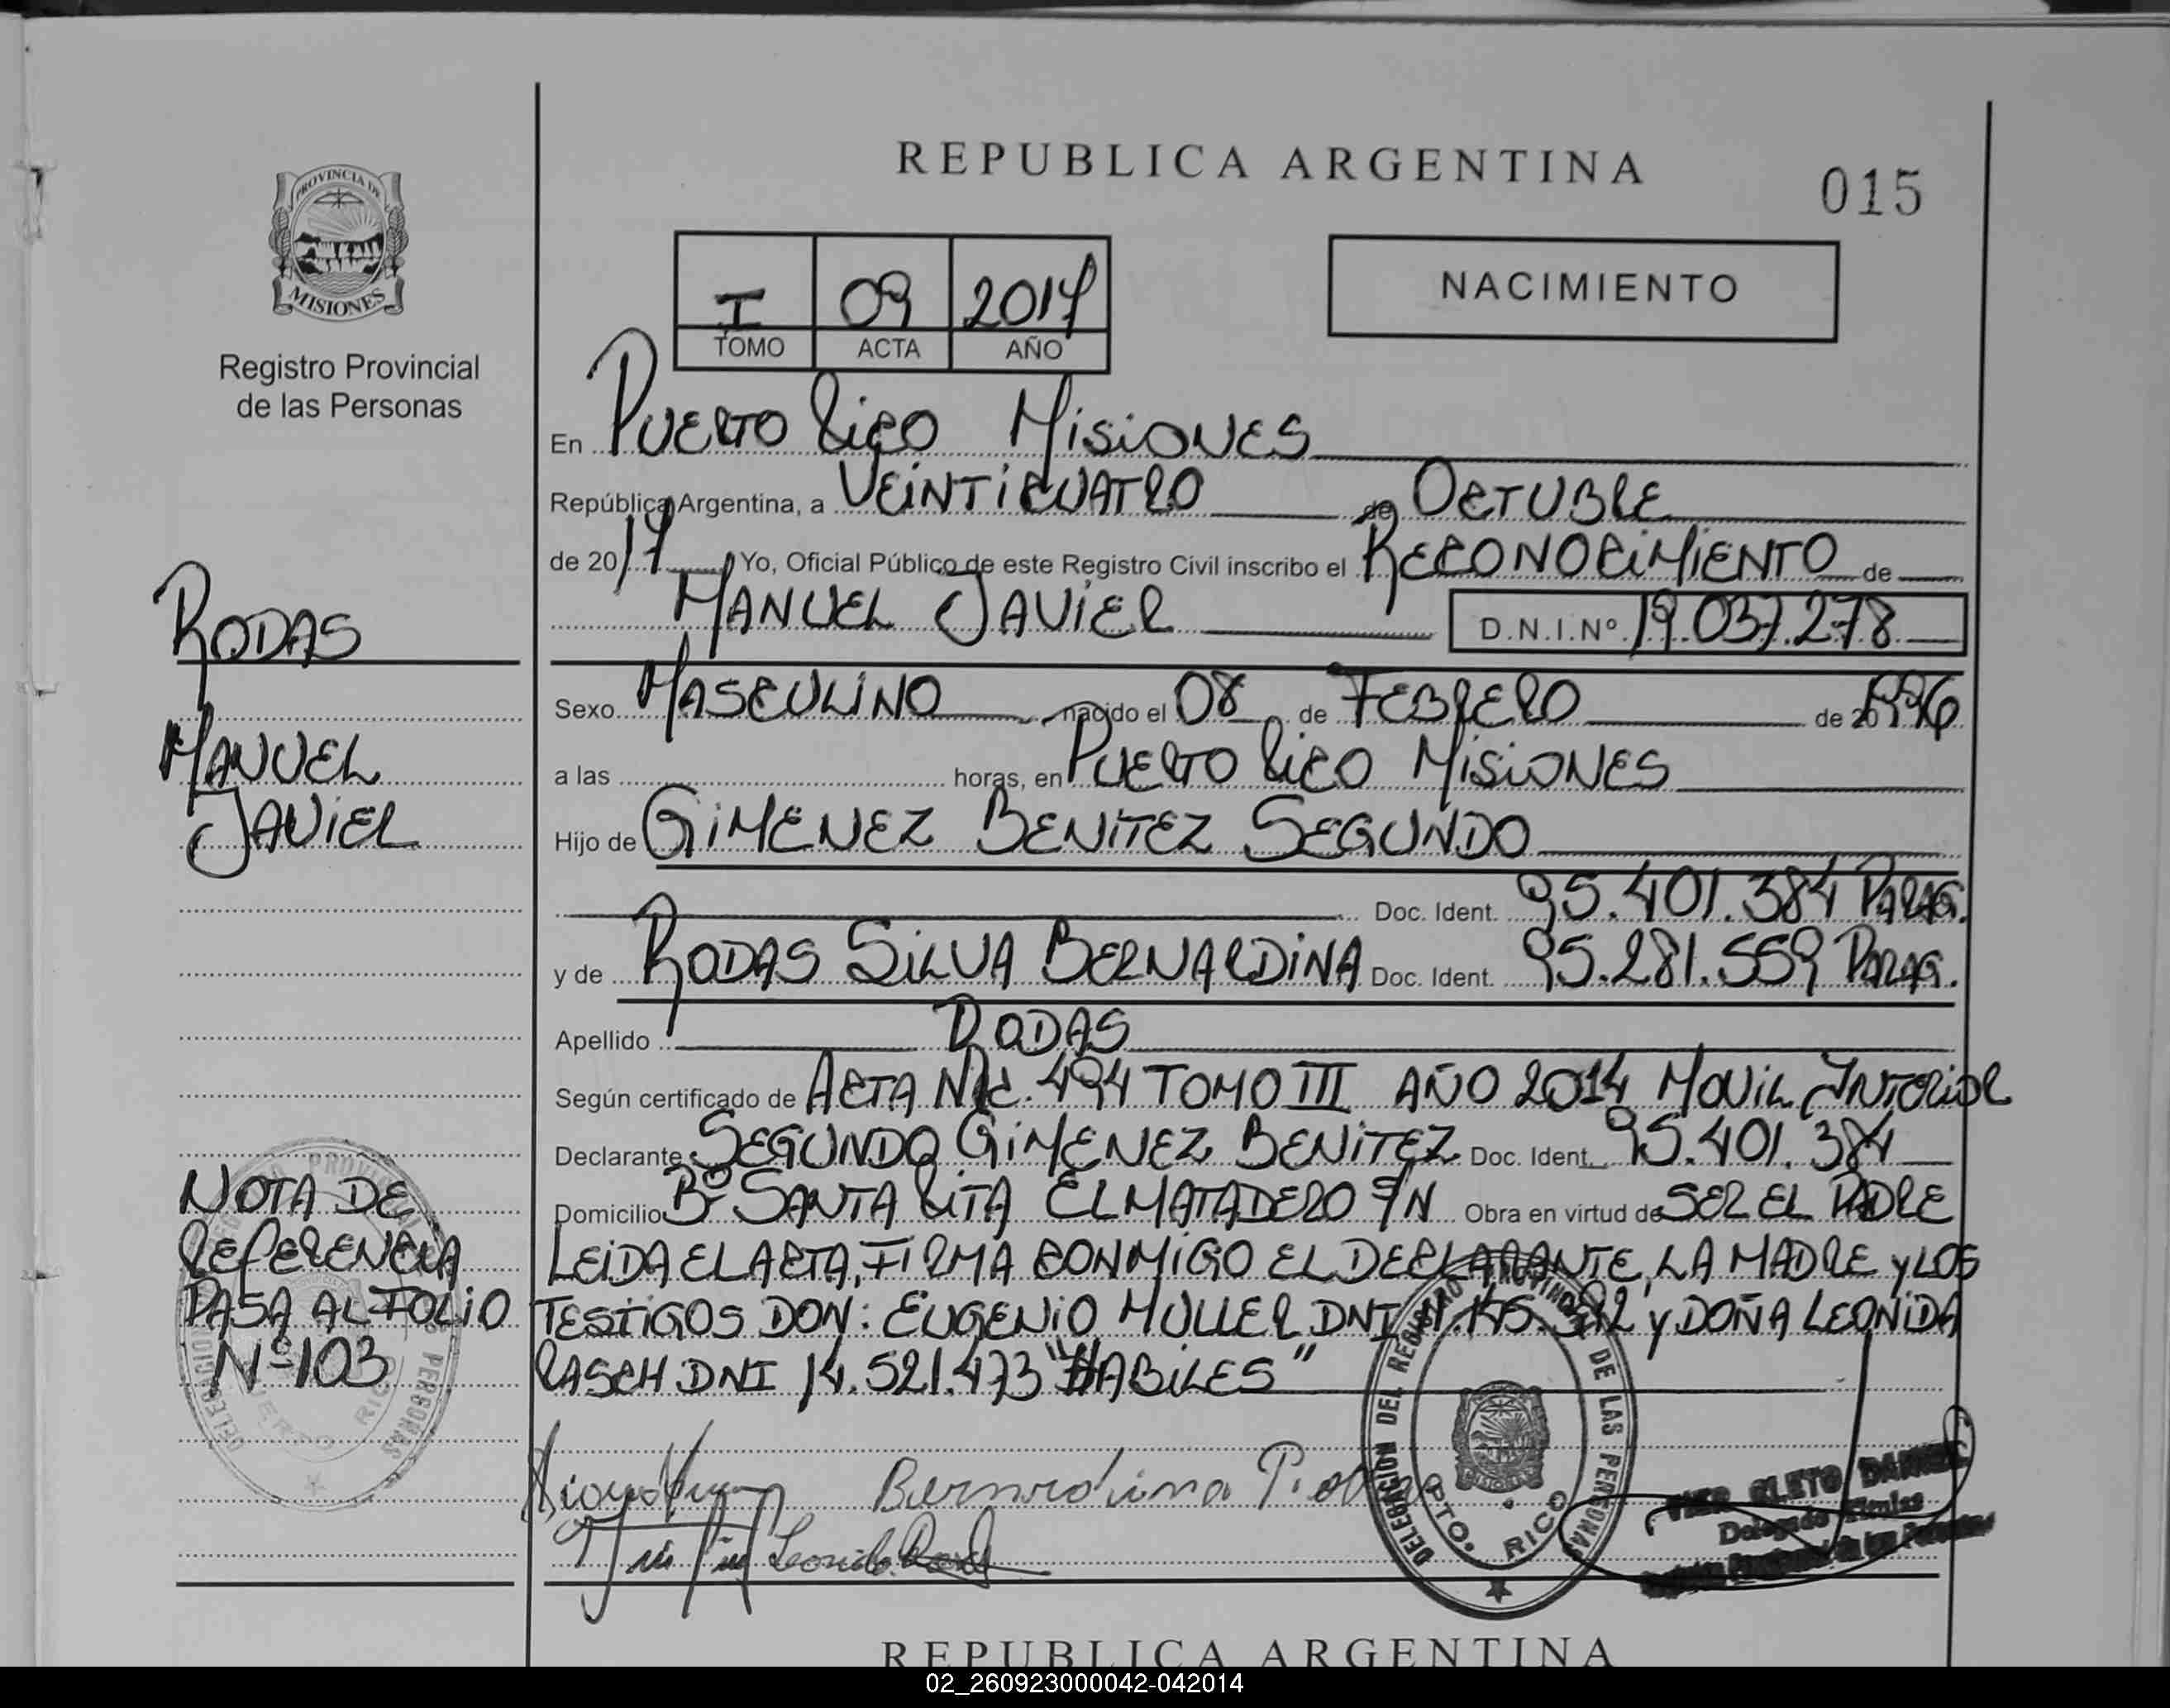 REPUBLICA ARGENTINA
015
PROVINCIA DE
MISIONES
Registro Provincial
de las Personas
I 09 2014
TOMO ACTA AÑO
NACIMIENTO
En PUERTO RICO MISIONES
República Argentina, a VEINTICUATRO de OCTUBRE
de 2014 Yo, Oficial Público de este Registro Civil inscribo el RECONOCIMIENTO de
MANUEL JAVIER D.N.I.Nº 19.037.278
RODAS
MANUEL
JAVIER
Sexo MASCULINO nacido el 08 de FEBRERO de 1996
a las horas, en PUERTO RICO MISIONES
Hijo de GIMENEZ BENITEZ SEGUNDO
Doc. Ident. 95.401.384 PARAG.
y de RODAS SILVA BERNARDINA Doc. Ident. 95.281.559 PARAG.
Apellido RODAS
Según certificado de ACTA Nº. 494 TOMO III AÑO 2014 MOVIL INTERIOR
Declarante SEGUNDO GIMENEZ BENITEZ Doc. Ident. 95.401.384
Domicilio Bº SANTA RITA EL MATADERO S/N Obra en virtud de SER EL PADRE
LEIDA EL ACTA, FIRMA CONMIGO EL DECLARANTE, LA MADRE y LOS
TESTIGOS DON: EUGENIO MULLER DNI y DOÑA LEONIDA
RASCH DNI 14.521.473 "HABILES"
NOTA DE
REFERENCIA
PASA AL FOLIO
Nº 103
Bernardina
Leonida
DELEGACION DEL REGISTRO PROVINCIAL DE LAS PERSONAS
PTO. RICO
REPUBLICA ARGENTINA
02_260923000042-042014